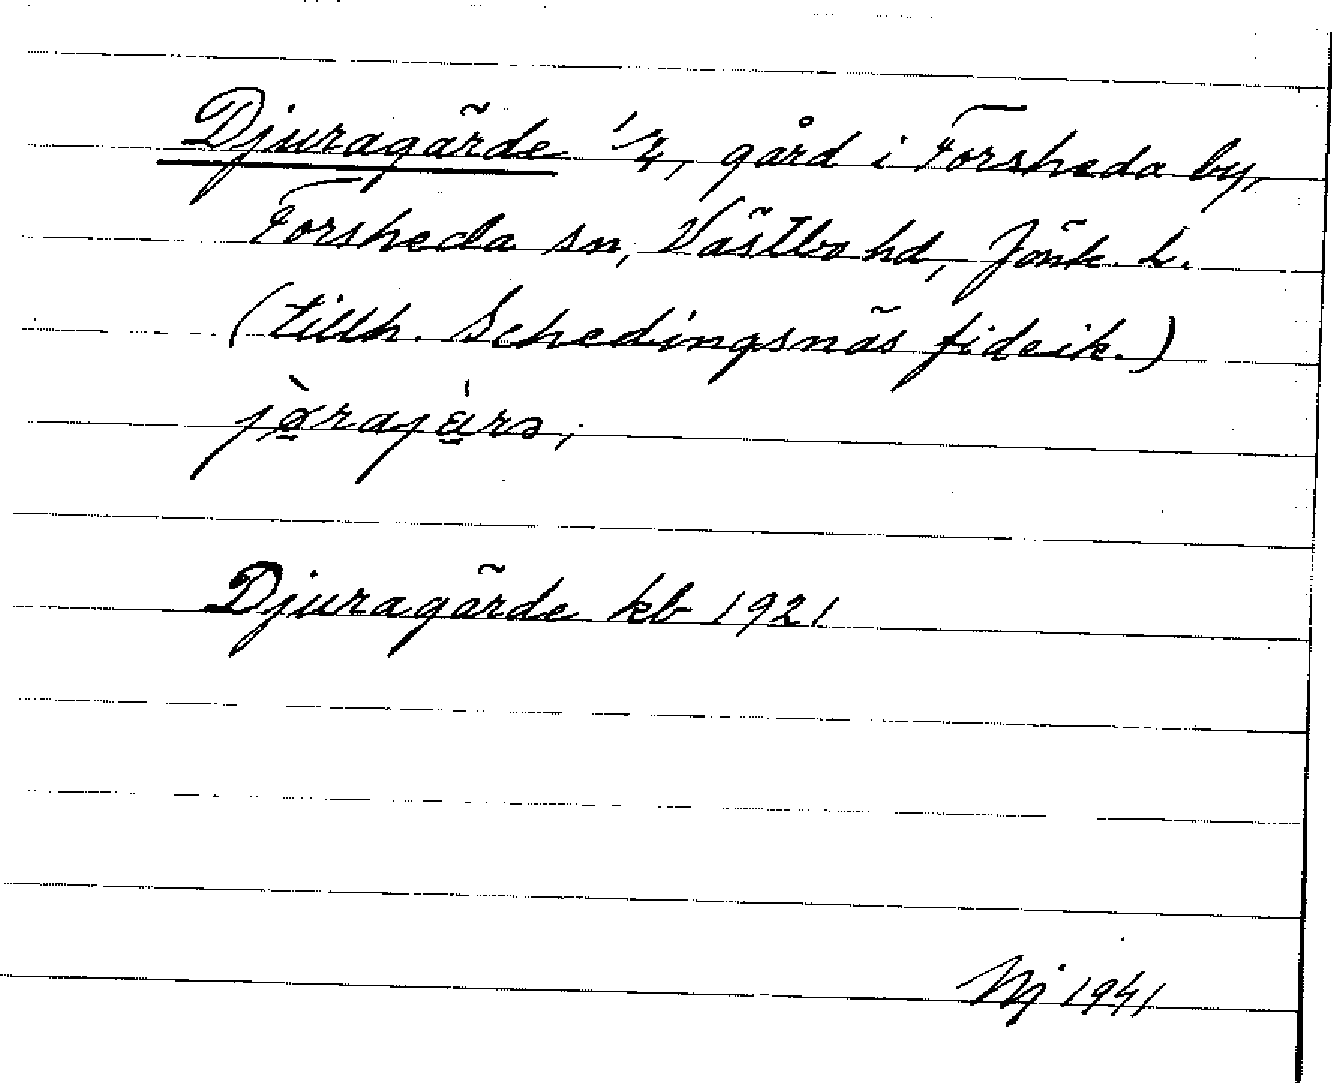 Djuragärde 1/4, gård i Forsheda by,
Forsheda sn, Västbo hd, Jönk. L.
(tillh. Schedingsnäs fideik.)
Djuragärde kb 1921
Nj 1941